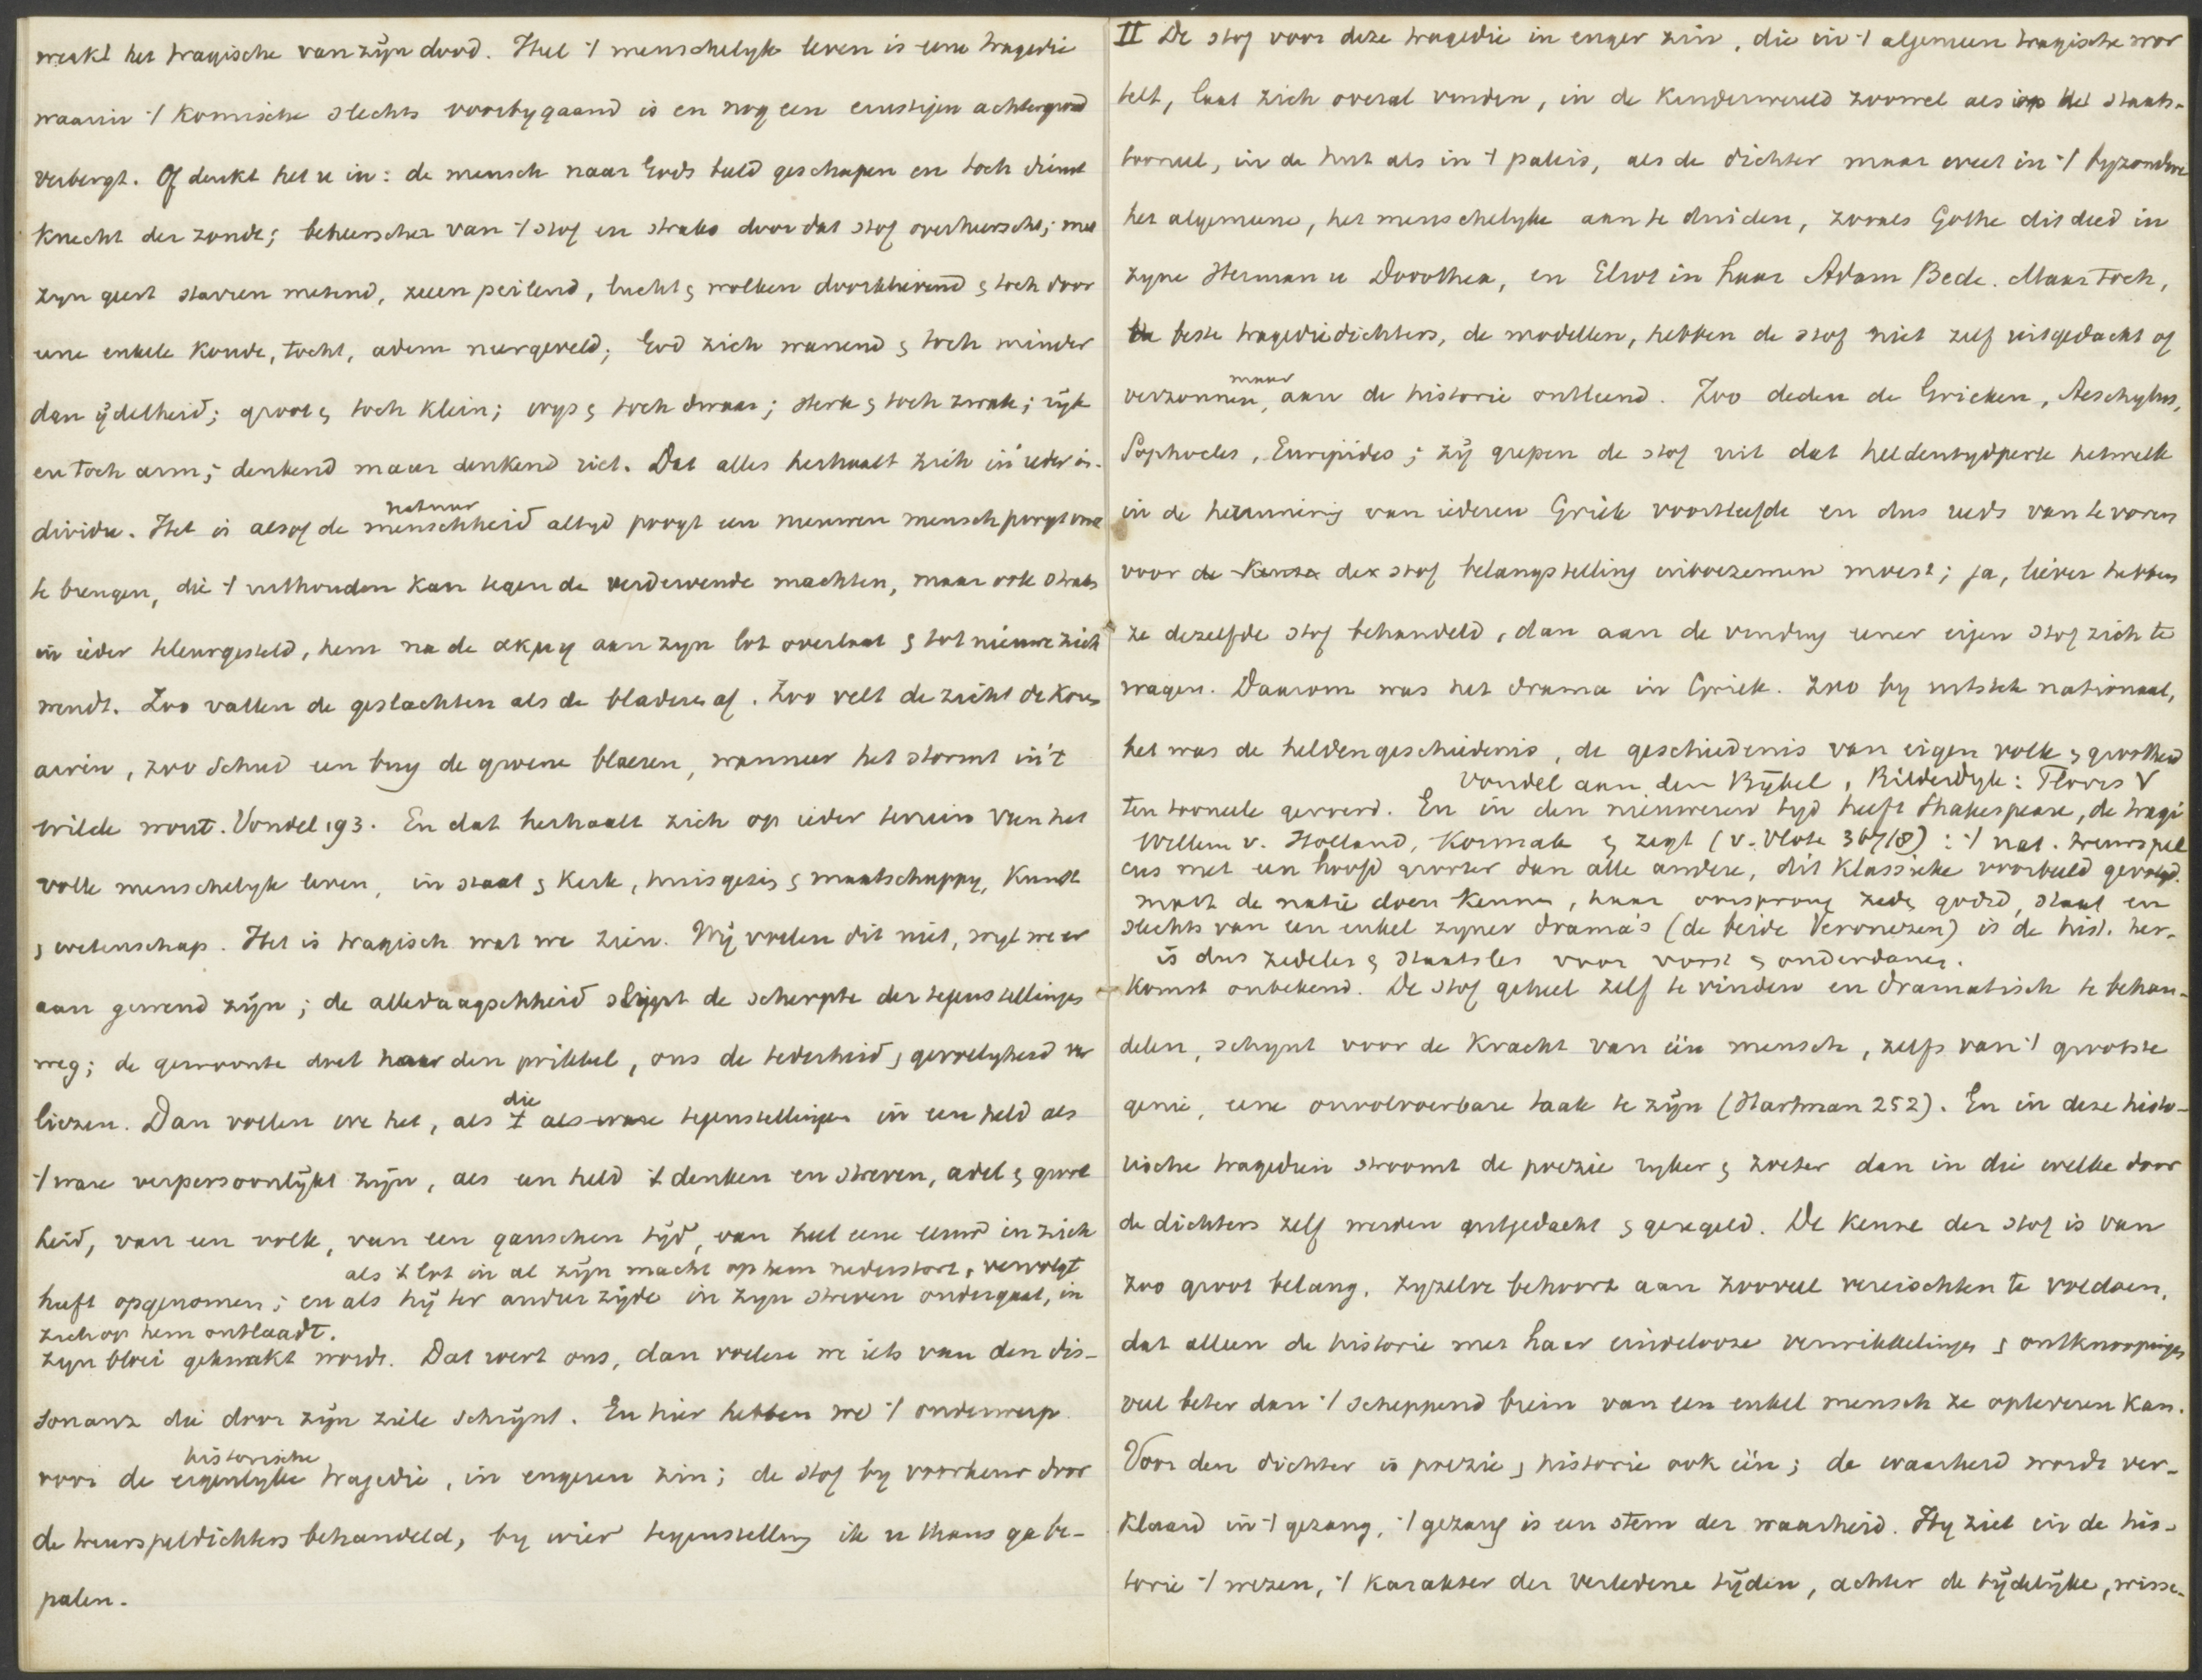 werkt het tragische van zijn dood. Heel 't menschelijk leven is eene tragedie
waarin 't komische slechts voorbygaand is en nog een ernstigen achtergrond
verbergt. Of denkt het u in: de mensch naar Gods beeld geschapen en toch dienst
knecht der zonde; beheerscher van 't stof en straks door dat stof overheerscht; met
zyn geest starren metend, zeeen peilend, lucht & wolken doorklievend & toch door
eene enkele koude, tocht, adem neergeveld; God zich wanend & toch minder
dan ijdelheid; groot & toch klein; wys & toch dwaas; sterk & toch zwak; ryk
en toch arm; denkend maar denkend riet. Dat alles herhaalt zich in ieder in-
dividu. Het is alsof de menschheid natuur altyd poogt een nieuwen mensch voort
te brengen, die 't uithouden kan tegen de verderwende machten, maar ook straks
in ieder teleurgesteld, hem na de ακμη aan zyn lot overlaat & tot nieuwe zich
wendt. Zoo vallen de geslachten als de bladeren af. Zoo velt de zicht de koren
airen, zoo schud een buy de groene blaeren, wanneer het stormt in 't
wilde wout. Vondel 193. En dat herhaalt zich op ieder terrein van het
volle menschelyk leven, in staat & kerk, huisgezin & maatschappy, kunst
& wetenschap. Het is tragisch wat we zien. Wij voelen dit niet, wyl we er
aan gewend zijn; de alledaagschheid slypt de scherpte der tegenstellingen
weg; de gewoonte doet haar den prikkel, ons de teederheid & gevoeligheid ver
liezen. Dan voelen we het, als die 't als ware tegenstellingen in een held als
't ware verpersoonlijkt zijn, als een held 't denken en streven, adel & groot
heid, van een volk, van een ganschen tijd, van heel eene eeuw in zich
als 't lot in al zijn macht op hem nederstort, vervolgt
heeft opgenomen; en als hij ter andere zijde in zyn streven ondergaat, in
zich op hem ontlaadt.
zyn bloei geknakt wordt. Dat roert ons, dan voelen we iets van den dis-
sonanz die door zijn ziele schrijnt. En hier hebben we 't onderwerp
historische
voor de eigenlyke tragedie, in engeren zin; de stof by voorkeur door
de treurspeldichters behandeld, by wier tegenstelling ik u thans ga be-
palen.
II De stof voor deze tragedie in enger zin, die in 't algemeen tragische wor
telt, laat zich overal vinden, in de kinderwereld zoowel als op het staats-
tooneel, in de hut als in 't paleis, als de dichter maar weet in 't byzondere
het algemeene, het menschelyke aan te duiden, zooals Göthe dit deed in
zyne Herman u Dorothea, en Eliot in haar Adam Bede. Maar toch,
de beste tragediedichters, de modellen, hebben de stof niet zelf uitgedacht of
verzonnen, maar aan de historie ontleend. Zoo deden de Grieken, Aeschylus,
Sophocles, Euripides; zij grepen de stof uit dat heldentydperk hetwelk
in de herinnering van iederen Griek voortleefde en dus reeds van te voren
voor de keuze der stof belangstelling inboezemen moest; ja, liever hebben
ze dezelfde stof behandeld, dan aan de vinding eener eigen stof zich te
wagen. Daarom was het drama in Griek. zoo by uitstek nationaal,
het was de heldengeschiedenis, de geschiedenis van eigen volk & grootheid
Vondel aan den Bijbel, Bilderdyk: Floris V
ten tooneele gevoerd. En in den nieuweren tyd heeft Shakespeare, de tragi
Willem v. Holland, Kormak & zegt (v. Vloten 367/8): 't nat. treurspel
cus met een hoofd grooter dan alle andere, dit klassieke voorbeeld gevolgd.
moet de natie doen kennen, haar oorsprong zede, godsd, staat en
slechts van een enkel zyner drama's (de beide Veronezen) is de hist. her-
is dus zedeles & staatsles voor vorst & onderdanen.
komst onbekend. De stof geheel zelf te vinden en dramatisch te behan-
delen, schynt voor de kracht van één mensch, zelfs van 't grootste
genie, eene onvolvoerbare taak te zijn (Hartman 252). En in deze histo-
rische tragedien stroomt de poezie ryker & zoeter dan in die welke door
de dichters zelf werden uitgedacht & geregeld. De keuze der stof is van
zoo groot belang, zyzelve behoort aan zooveel vereischten te voldoen,
dat alleen de historie met haar eindelooze verwikkelingen & ontknoopingen
veel beter dan 't scheppend brein van een enkel mensch ze opleveren kan.
Voor den dichter is poezie & historie ook één; de waarheid wordt ver-
klaard in 't gezang, 't gezang is een stem der waarheid. Hy ziet in de his-
torie 't wezen, 't karakter der verledene tijden, achter de tijdelijke, wisse-